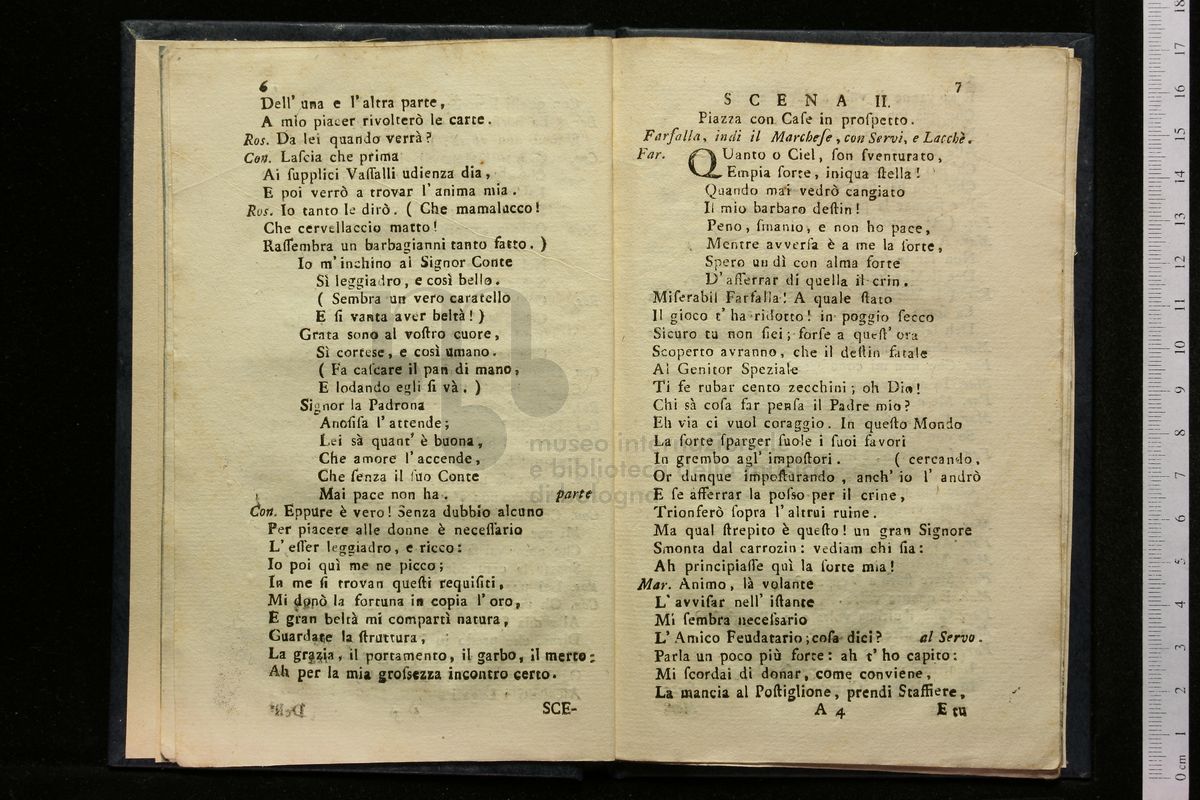 6
Dell' una e l'altra parte,
A mio piacer rivolterò le carte.
Ros. Da lei quando verrà?
Con. Laſcia che prima
Ai ſupplici Vaſſalli udienza dia,
E poi verrò a trovar l'anima mia.
Ros. Io tanto le dirò. ( Che mamalucco!
Che cervellaccio matto!
Raſſembra un barbagianni tanto fatto. )
Io m'inchino al Signor Conte
Sì leggiadro, e così bello.
( Sembra un vero caratello
E ſi vanta aver beltà! )
Grata sono al voſtro cuore,
Sì cortese, e così umano.
( Fa caſcare il pan di mano,
E lodando egli ſi và. )
Signor la Padrona
Anſioſa l'attende;
Lei sà quant' è buona,
Che amore l'accende,
Che ſenza il ſuo Conte
Mai pace non ha. parte
Con. Eppure è vero! Senza dubbio alcuno
Per piacere alle donne è neceſſario
L'eſſer leggiadro, e ricco:
Io poi quì me ne picco;
In me ſi trovan queſti requiſiti,
Mi donò la fortuna in copia l'oro,
E gran beltà mi compartì natura,
Guardate la ſtruttura,
La grazia, il portamento, il garbo, il merto:
Ah per la mia groſsezza incontro certo.
SCE-
7
SCENA II.
Piazza con Caſe in proſpetto.
Farfalla, indi il Marcheſe, con Servi, e Lacchè.
Far. QUanto o Ciel, ſon ſventurato,
Empia ſorte, iniqua ſtella!
Quando mai vedrò cangiato
Il mio barbaro deſtin!
Peno, ſmanio, e non ho pace,
Mentre avverſa è a me la ſorte,
Spero un dì con alma forte
D'afferrar di quella il crin.
Miſerabil Farfalla! A quale ſtato
Il gioco t'ha ridotto! in poggio ſecco
Sicuro tu non ſiei; forſe a queſt' ora
Scoperto avranno, che il deſtin fatale
Al Genitor Speziale
Ti fe rubar cento zecchini; oh Dio!
Chi sà coſa far penſa il Padre mio?
Eh via ci vuol coraggio. In queſto Mondo
La ſorte ſparger ſuole i ſuoi favori
In grembo agl' impoſtori. ( cercando,
Or dunque impoſturando, anch' io l'andrò
E ſe afferrar la poſso per il crine,
Trionferò ſopra l'altrui ruine.
Ma qual ſtrepito è queſto! un gran Signore
Smonta dal carrozin: vediam chi ſia:
Ah principiaſſe quì la ſorte mia!
Mar. Animo, là volante
L'avviſar nell' iſtante
Mi ſembra neceſsario
L'Amico Feudatario; coſa dici? al Servo.
Parla un poco più forte: ah t'ho capito:
Mi ſcordai di donar, come conviene,
La mancia al Poſtiglione, prendi Staffiere,
A 4
E tu